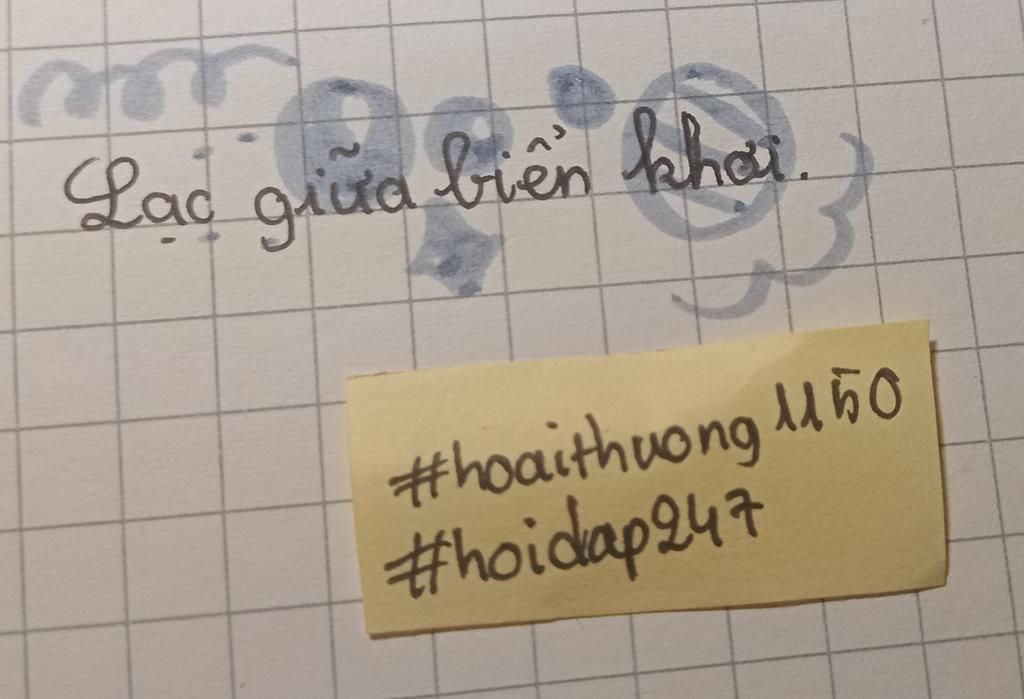 Lạc giữa biển khơi.
#hoaithuong1150
#hoidap247